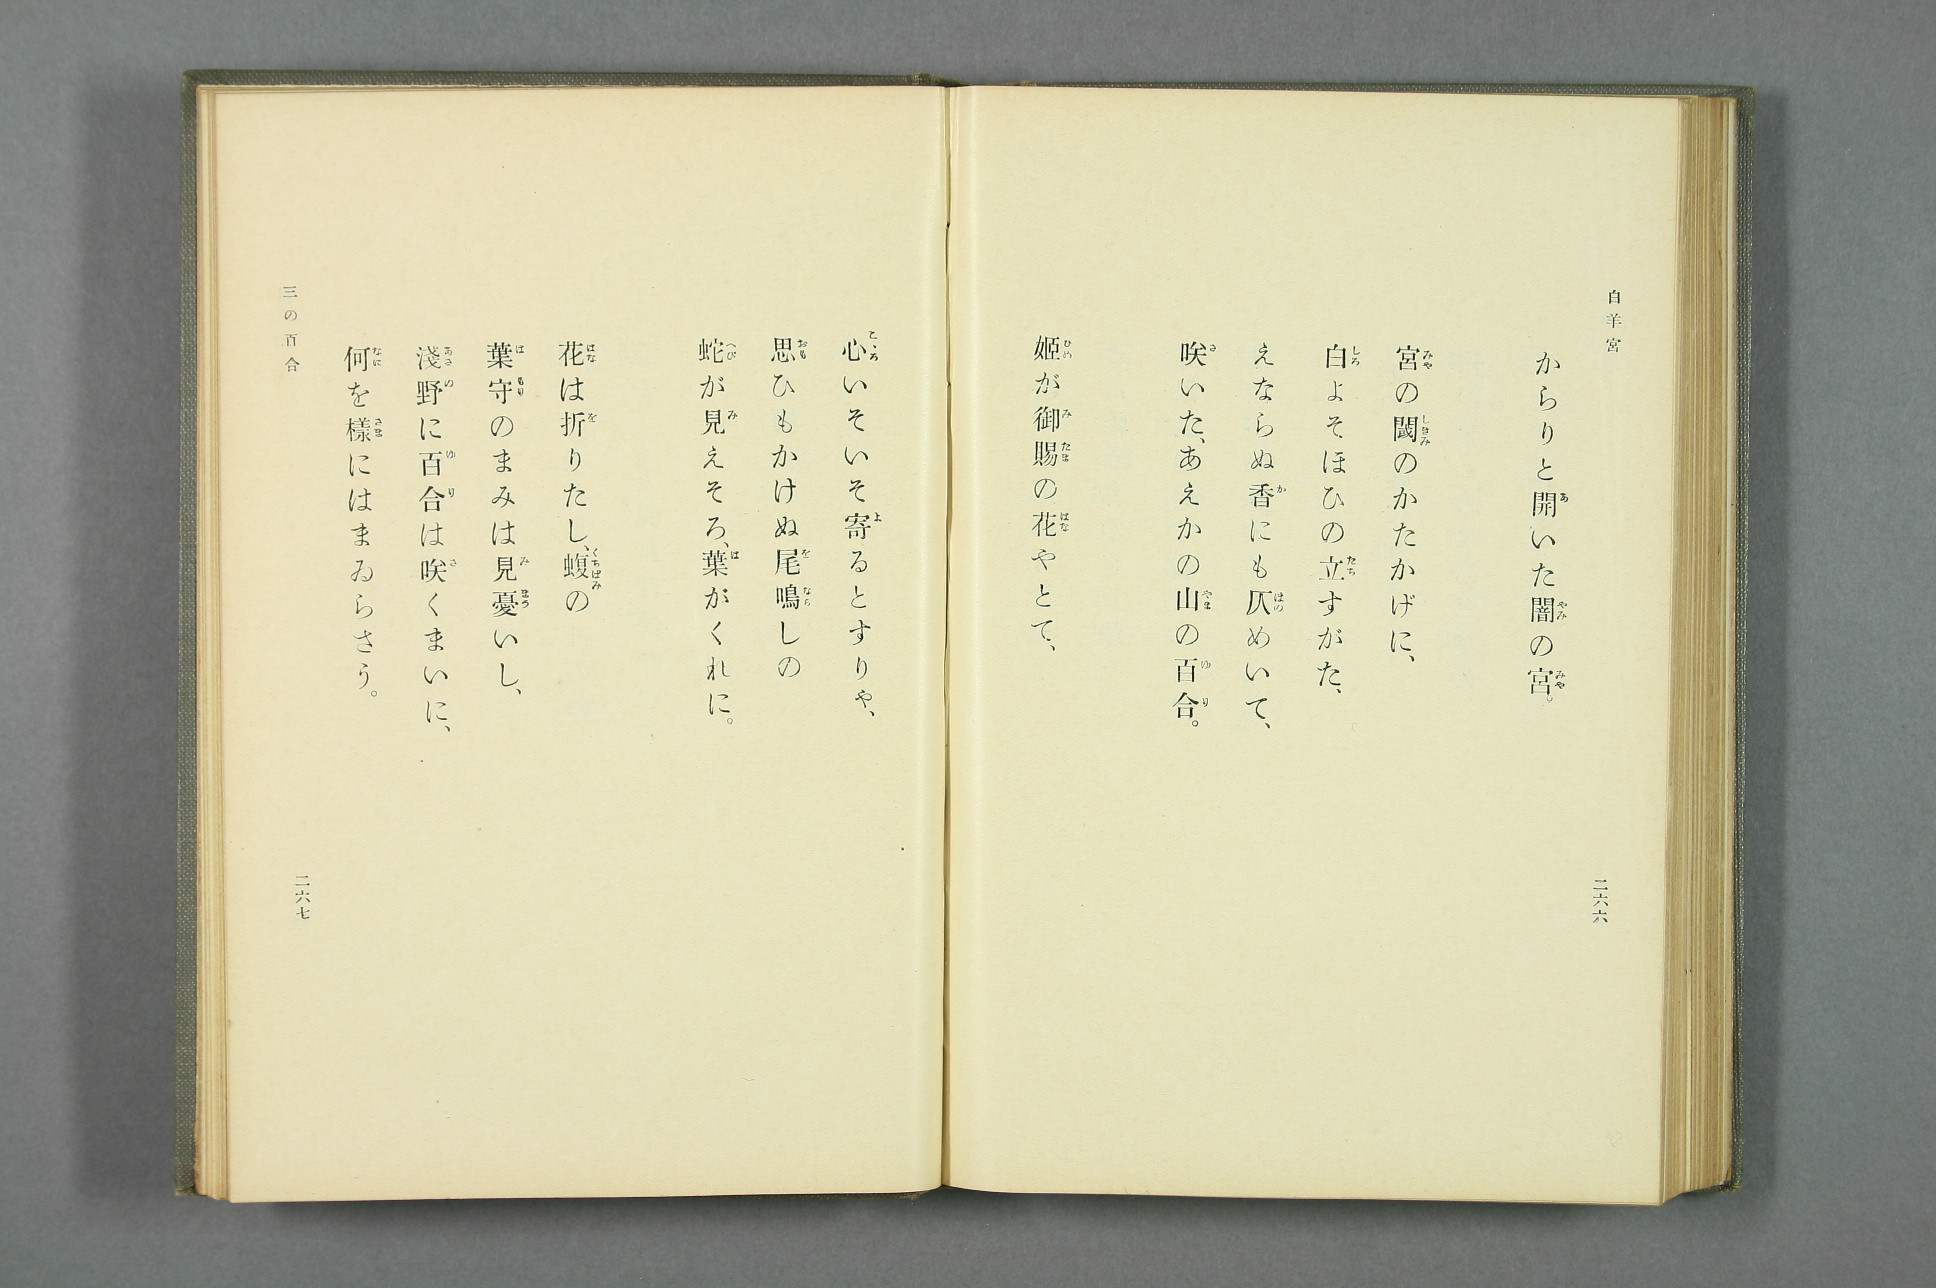 白羊宮
からりと開いた闇の宮。
宮の閾のかたかげに、
白よそほひの立すがた、
えならぬ香にも仄めいて、
咲いた、あえかの山の百合。
姬が御賜の花やとて、
二六六
心いそいそ寄るとすりや、
思ひもかけぬ尾鳴しの
蛇が見えそろ、葉がくれに。
花は折りたし、蝮の
葉守のまみは見憂いし、
淺野に百合は咲くまいに、
何を樣にはまゐらさう。
三の百合
二六七